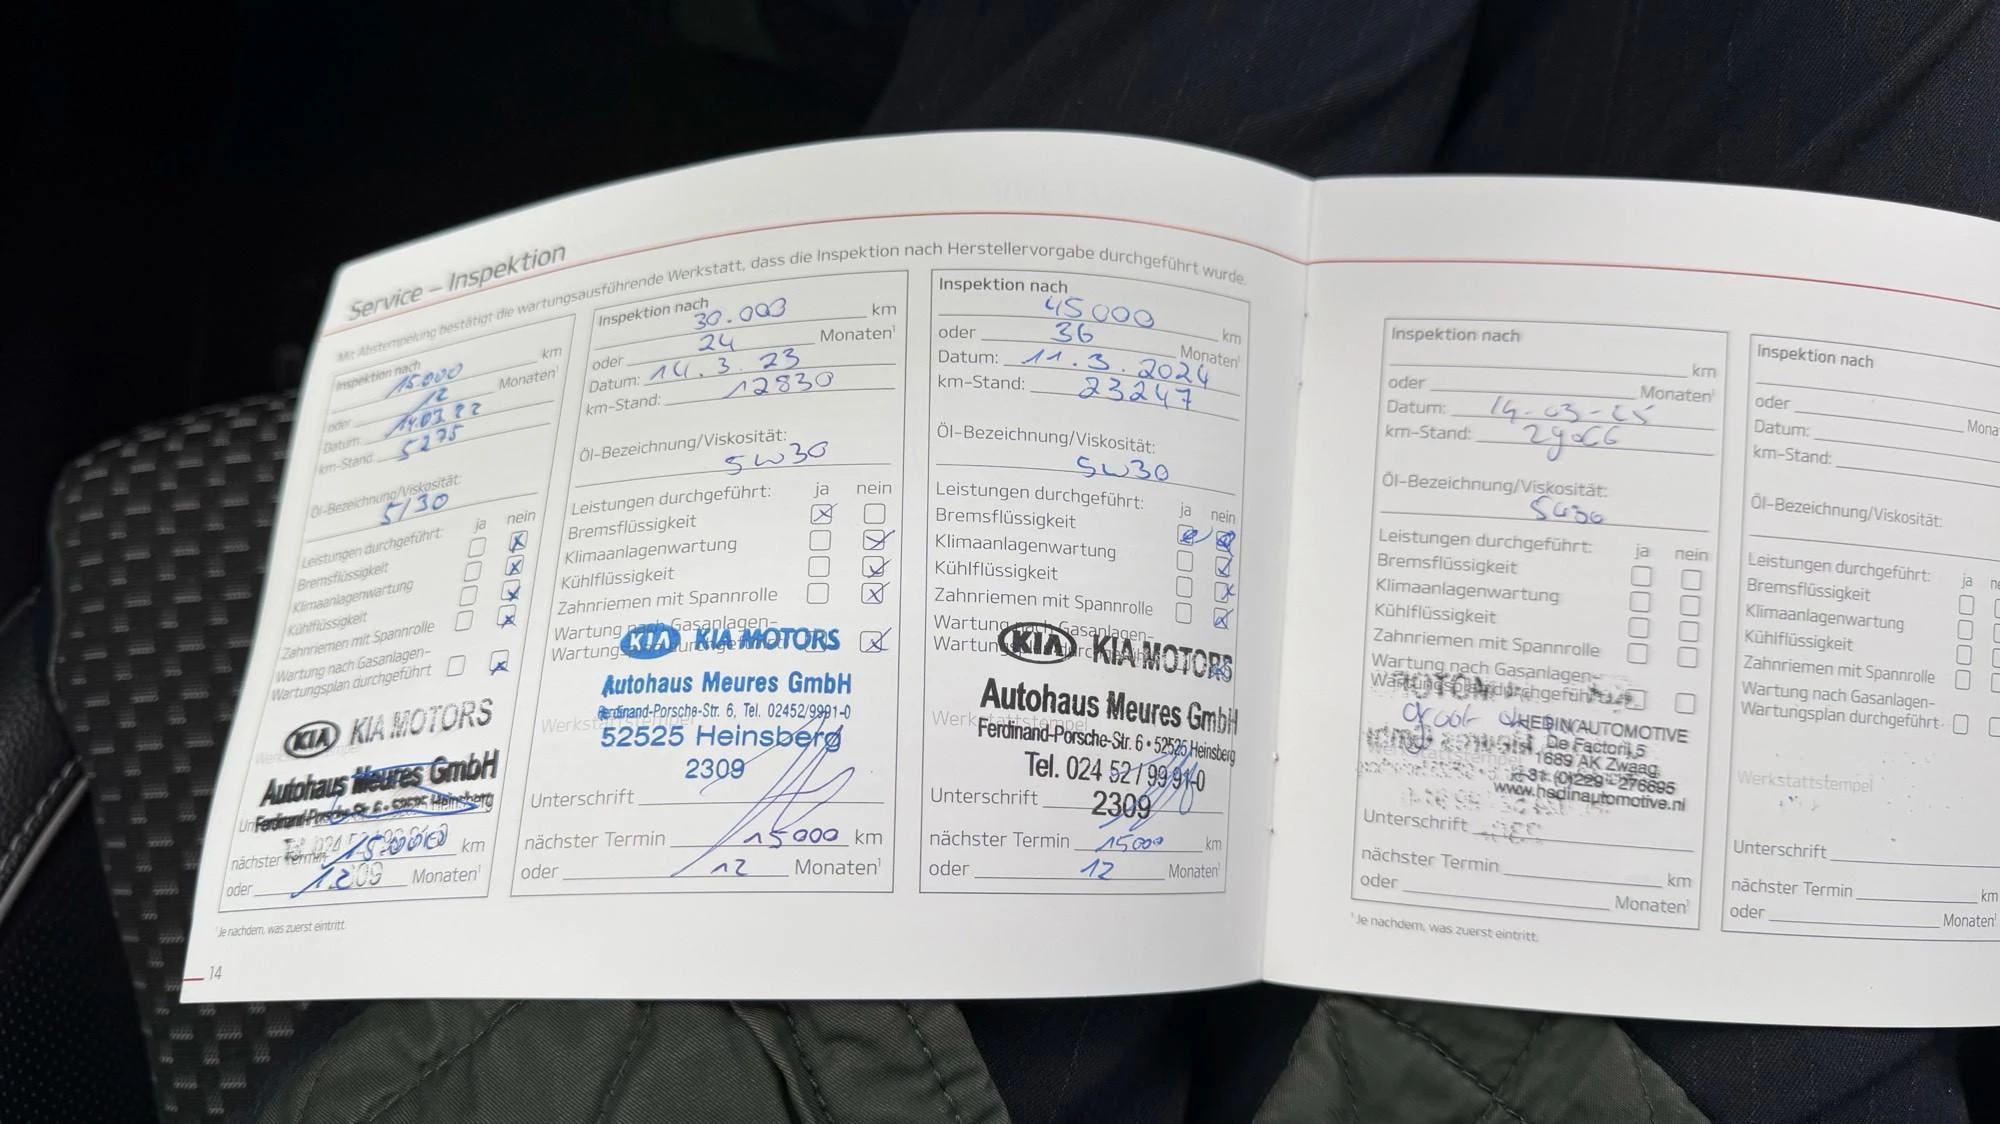 Service – Inspektion
Mit Abstempelung bestätigt die wartungsausführende Werkstatt, dass die Inspektion nach Herstellervorgabe durchgeführt wurde.
Inspektion nach
15.000 km
oder 12 Monaten¹
Datum: 14.03.22
km-Stand: 5275
Öl-Bezeichnung/Viskosität:
5/30
Leistungen durchgeführt: ja nein
Bremsflüssigkeit
Klimaanlagenwartung
Kühlflüssigkeit
Zahnriemen mit Spannrolle
Wartung nach Gasanlagen-
Wartungsplan durchgeführt
KIA KIA MOTORS
Autohaus Meures GmbH
Ferdinand-Porsche-Str. 6 • 52525 Heinsberg
nächster Termin 15000 km
oder 12 Monaten¹
¹Je nachdem, was zuerst eintritt.
14
Inspektion nach
30.000 km
oder 24 Monaten¹
Datum: 14.3.23
km-Stand: 12830
Öl-Bezeichnung/Viskosität:
5W30
Leistungen durchgeführt: ja nein
Bremsflüssigkeit
Klimaanlagenwartung
Kühlflüssigkeit
Zahnriemen mit Spannrolle
Wartung nach Gasanlagen-
Wartungsplan durchgeführt
KIA KIA MOTORS
Autohaus Meures GmbH
Ferdinand-Porsche-Str. 6, Tel. 02452/9991-0
Werkstattstempel
52525 Heinsberg
2309
Unterschrift
nächster Termin 15000 km
oder 12 Monaten¹
Inspektion nach
45000 km
oder 36 Monaten¹
Datum: 11.3.2024
km-Stand: 23247
Öl-Bezeichnung/Viskosität:
5W30
Leistungen durchgeführt: ja nein
Bremsflüssigkeit
Klimaanlagenwartung
Kühlflüssigkeit
Zahnriemen mit Spannrolle
Wartung nach Gasanlagen-
KIA KIA MOTORS
Autohaus Meures GmbH
Werkstattstempel
Ferdinand-Porsche-Str. 6 • 52525 Heinsberg
Tel. 024 52 / 99 91-0
2309
Unterschrift
nächster Termin 15000 km
oder 12 Monaten¹
Inspektion nach
km
oder Monaten¹
Datum: 14-03-25
km-Stand:
Öl-Bezeichnung/Viskosität:
Leistungen durchgeführt: ja nein
Bremsflüssigkeit
Klimaanlagenwartung
Kühlflüssigkeit
Zahnriemen mit Spannrolle
Wartung nach Gasanlagen-
Wartungsplan durchgeführt
HEDIN AUTOMOTIVE
De Factorij 5
1689 AK Zwaag
+31 (0)229 - 276695
www.hedinautomotive.nl
Unterschrift
nächster Termin km
oder Monaten¹
¹Je nachdem, was zuerst eintritt.
Inspektion nach
oder Mona
Datum:
km-Stand:
Öl-Bezeichnung/Viskosität:
Leistungen durchgeführt: ja ne
Bremsflüssigkeit
Klimaanlagenwartung
Kühlflüssigkeit
Zahnriemen mit Spannrolle
Wartung nach Gasanlagen-
Wartungsplan durchgeführt
Werkstattstempel
Unterschrift
nächster Termin km
oder Monaten¹